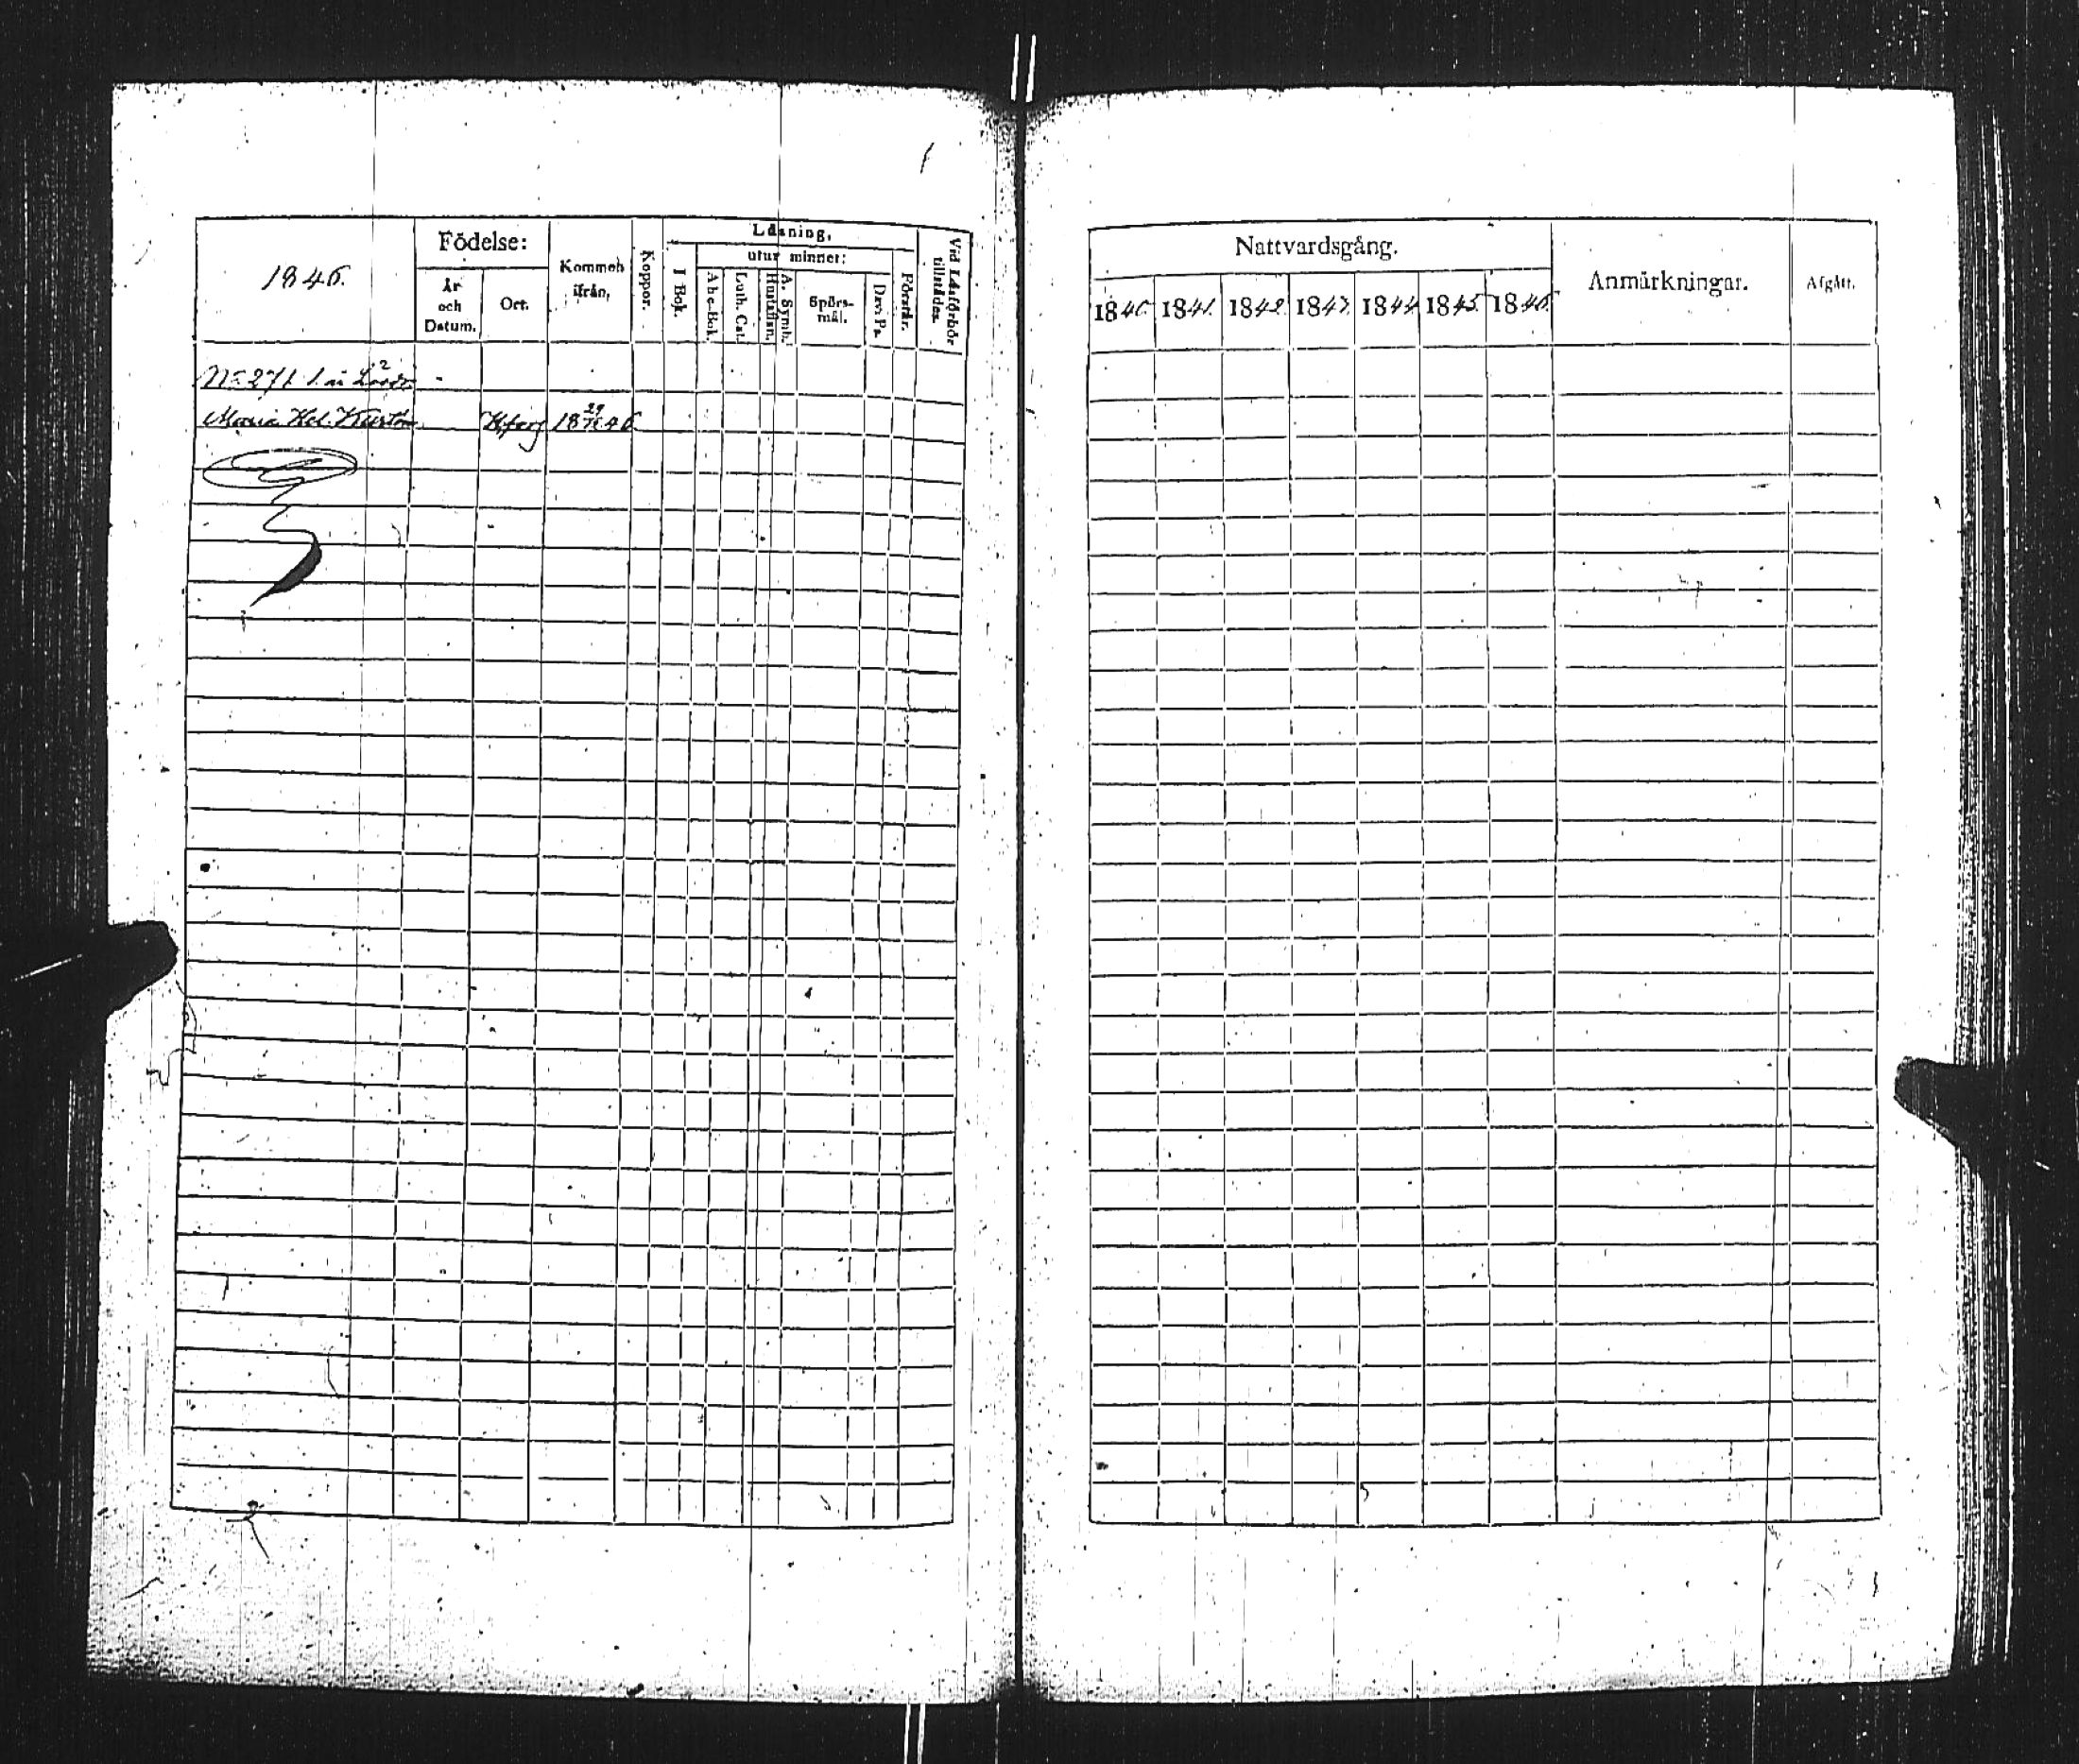 1846.
Födelse:
År
och
Datum.
Ort.
Kommen
ifrån,
Koppor.
Läsning,
I Bok.
utur minnet:
A b c-Bok.
Luth. Cat.
Hustaflan.
A. Symb.
Spörs-
mål.
Dav. Ps.
Förstår.
Vid Läsförhör
tillstädes.
No 271
Maria Hel. 18 29 46
Nattvardsgång.
1840 1841 1842 1843 1844 1845 1846
Anmärkningar.
Afgått.